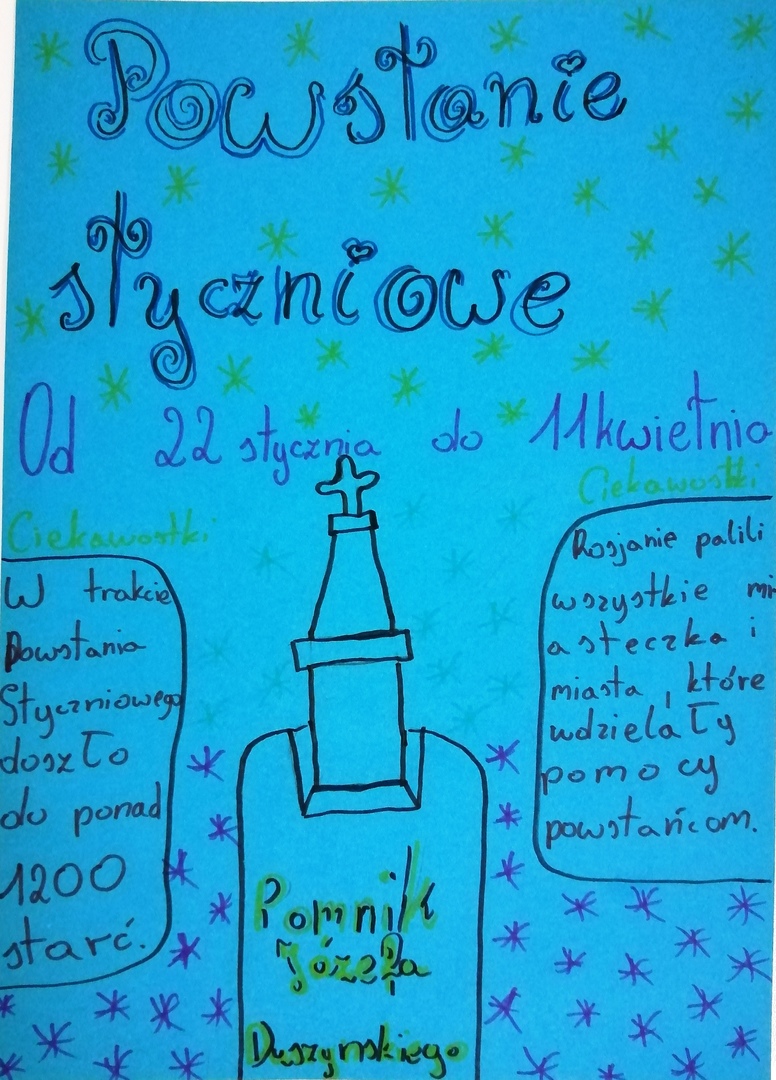 Powstanie
styczniowe
Od 22 stycznia do 11 kwietnia
Ciekawostki
W trakcie
Powstania
Styczniowego
doszło
do ponad
1200
starć.
Ciekawostki
Rosjanie palili
wszystkie mi
asteczka i
miasta, które
wdzielały
pomocy
powstańcom.
Pomnik
Józefa
Duszynskiego